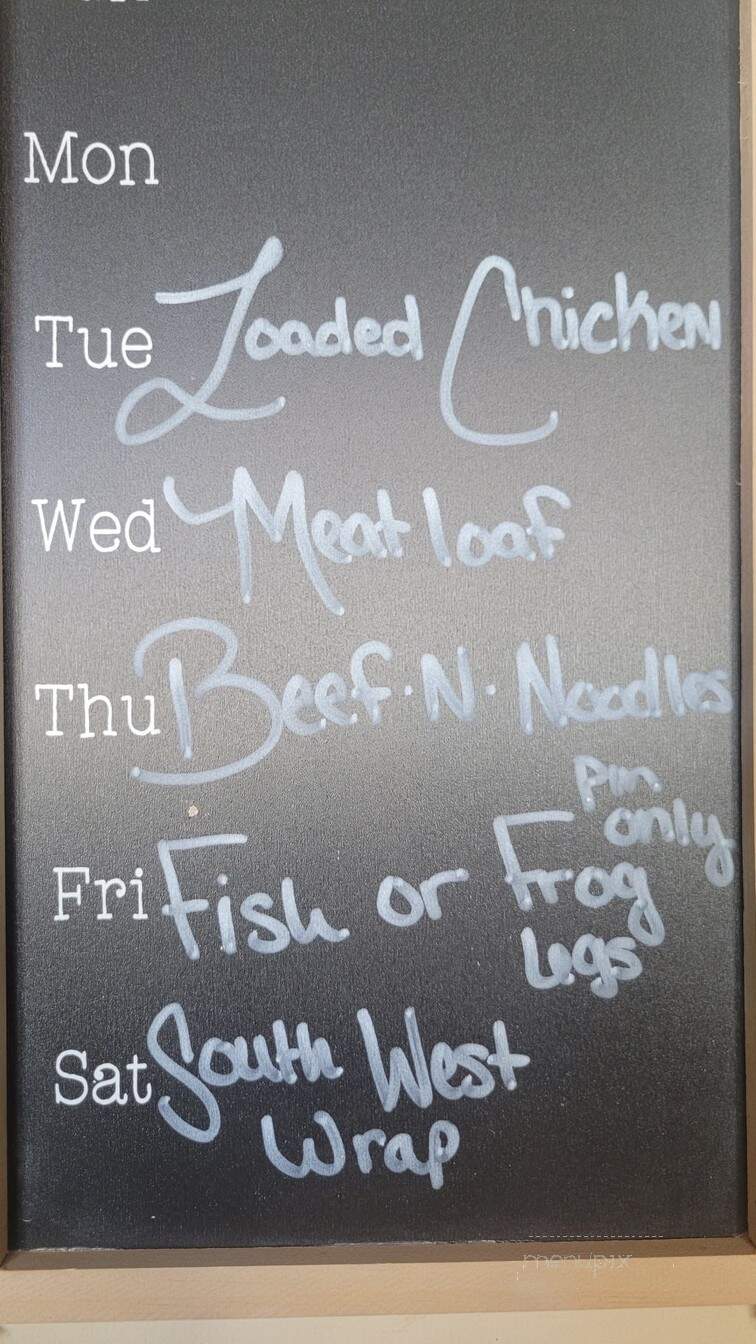 Mon
Tue Loaded Chicken
Wed Meatloaf
Thu Beef.N.Noodles
pm only
Fri Fish or Frog
Legs
Sat South West
Wrap
menupix